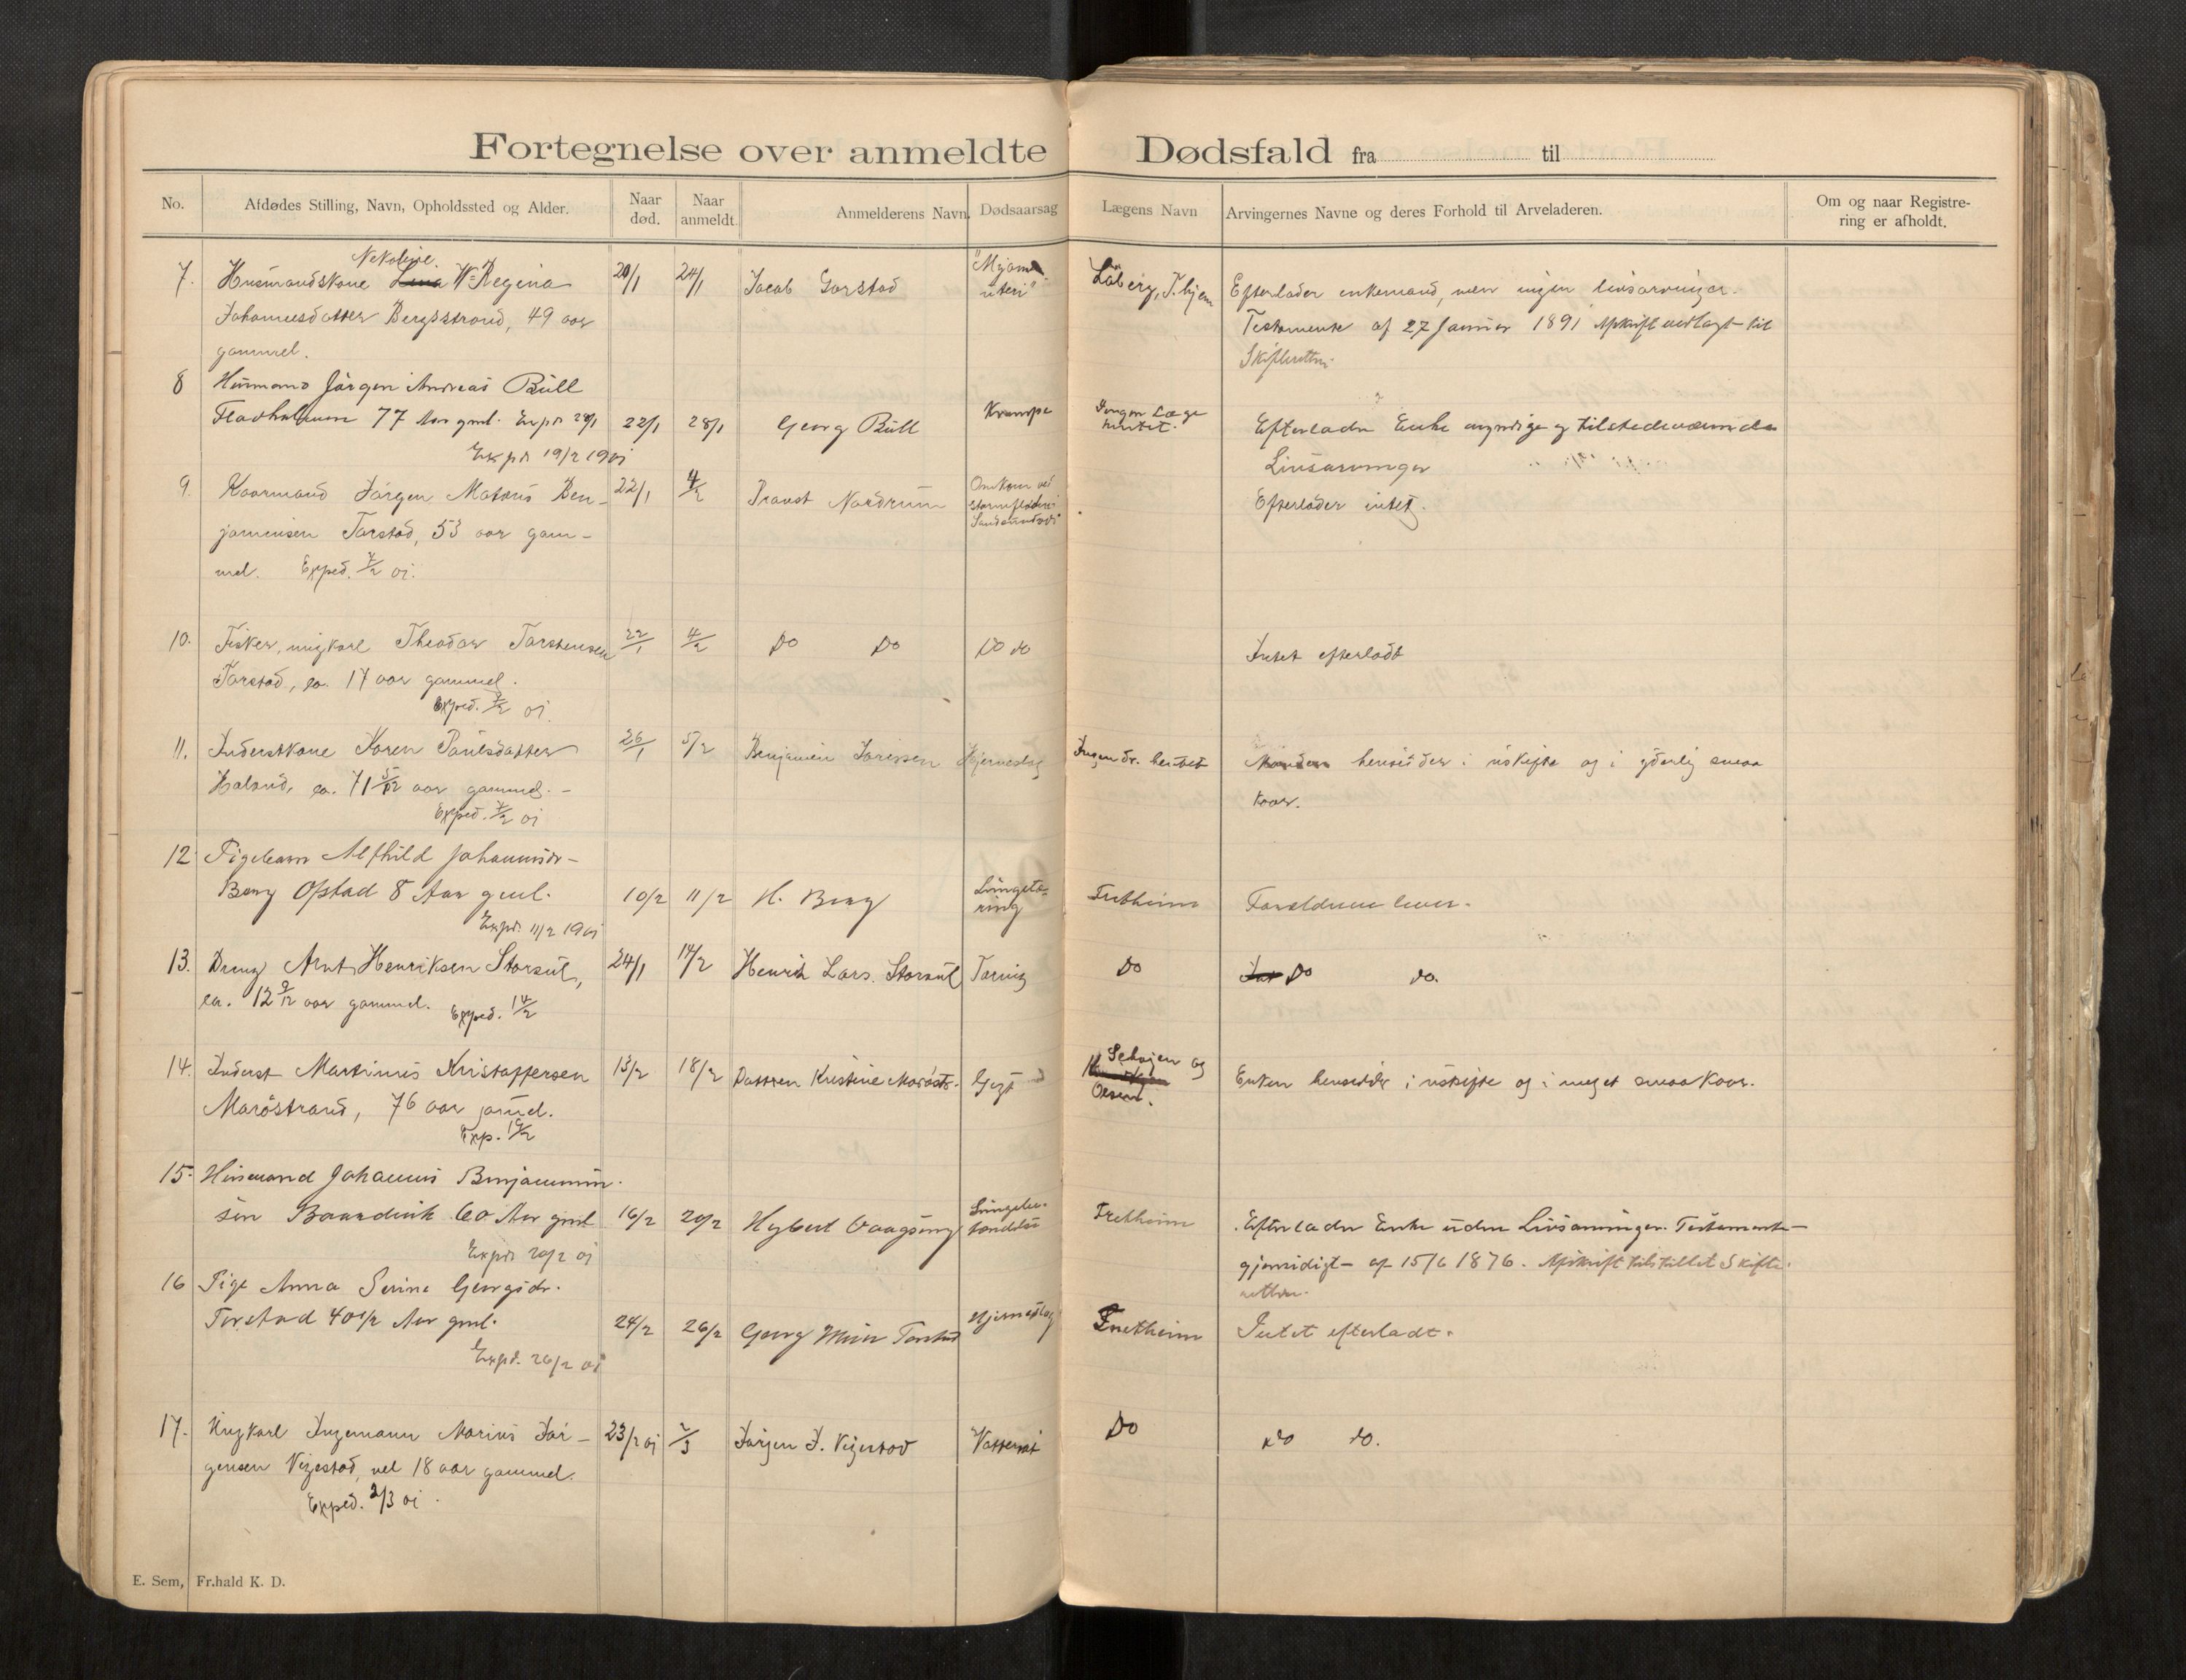 Fortegnelse over anmeldte Dødsfald fra til
No. Afdødes Stilling, Navn, Opholdssted og Alder. Naar død. Naar anmeldt. Anmelderens Navn. Dødsaarsag Lægens Navn Arvingernes Navne og deres Forhold til Arveladeren. Om og naar Registrering er afholdt.
Nekoline
7. Husmandskone Lina Regina 20/1 24/1 Jacob Gorstad "Myoma Låberg, T.hjem Efterlader enkemand, men ingen livsarvinger.
Johannesdatter Bergsstrand, 49 aar uteri" Testamente af 27 Januar 1891 Afskrift vedlagt til
gammel. Skifteretten.
8 Husmand Jörgen Andreas Büll
77 Aar gml. Expd 28/1 22/1 28/1 Georg Büll Krampe Ingen Læge hentet. Efterlader Enke myndige og tilstedeværende
Expd 19/2 1901 Livsarvinger
9. Kaarmand Jörgen Matæus Ben- 22/1 4/2 Provst Nordrum Omkom ved Efterlader intet.
jaminsen Torstad, 53 aar gam- stormfloden i
mel. Exped. 7/2 01. Sandsundvær
10. Fisker, ungkarl Theodor Torstensen 22/1 4/2 Do Do Do do Intet efterladt
Torstad, ca. 17 aar gammel.
Exped. 7/2 01.
11. Inderstkone Karen Paulsdatter 26/1 5/2 Benjamin Hjerneslag Ingen dr. hentet Manden hensidder i uskifte og i yderlig smaa
Haland, ca. 71 5/12 aar gammel. kaar.
Exped. 7/2 01
12. Pigebarn Alfhild Johannesdr-
Berg Opstad 8 Aar gml. 10/2 11/2 H. Berg Lungetæ- Fretheim Forældrene lever.
Expd. 11/2 1901 ring
13. Dreng Arnt Henriksen Storsul, 24/1 14/2 Henrik Lars. Storsul Tæring Do Int Do do.
ca. 12 9/12 aar gammel. Exped. 14/2
14. Inderst Martinius Kristoffersen 13/2 18/2 Datteren Kristine Gigt Schøjen og Enken hensidder i uskifte og i meget smaa kaar.
Maröstrand, 76 aar gammel. Olsen.
Exp. 19/2
15. Husmand Johannes Benjamin-
sen 60 Aar gml 16/2 20/2 Hybert Vaagsung Lungebe- Fretheim Efterlader Enke uden Livsarvinger. Testamente
Expd 20/2 01 tændelse gjensidigt af 15/6 1876. Afskrift tilstillet Skifte-
retten.
16 Pige Anna Serine Georgsdr.
Torstad 40 1/2 Aar gml. 24/2 26/2 Georg Torstad Hjerneslag Fretheim Intet efterladt.
Expd. 26/2 01
17. Ungkarl Ingemann Marius Jör- 23/2 01 2/3 Jörgen J. Vigestad Vattersot Do do do.
gensen Vigestad, vel 18 aar gammel.
Exped. 2/3 01.
E. Sem, Fr.hald K. D.